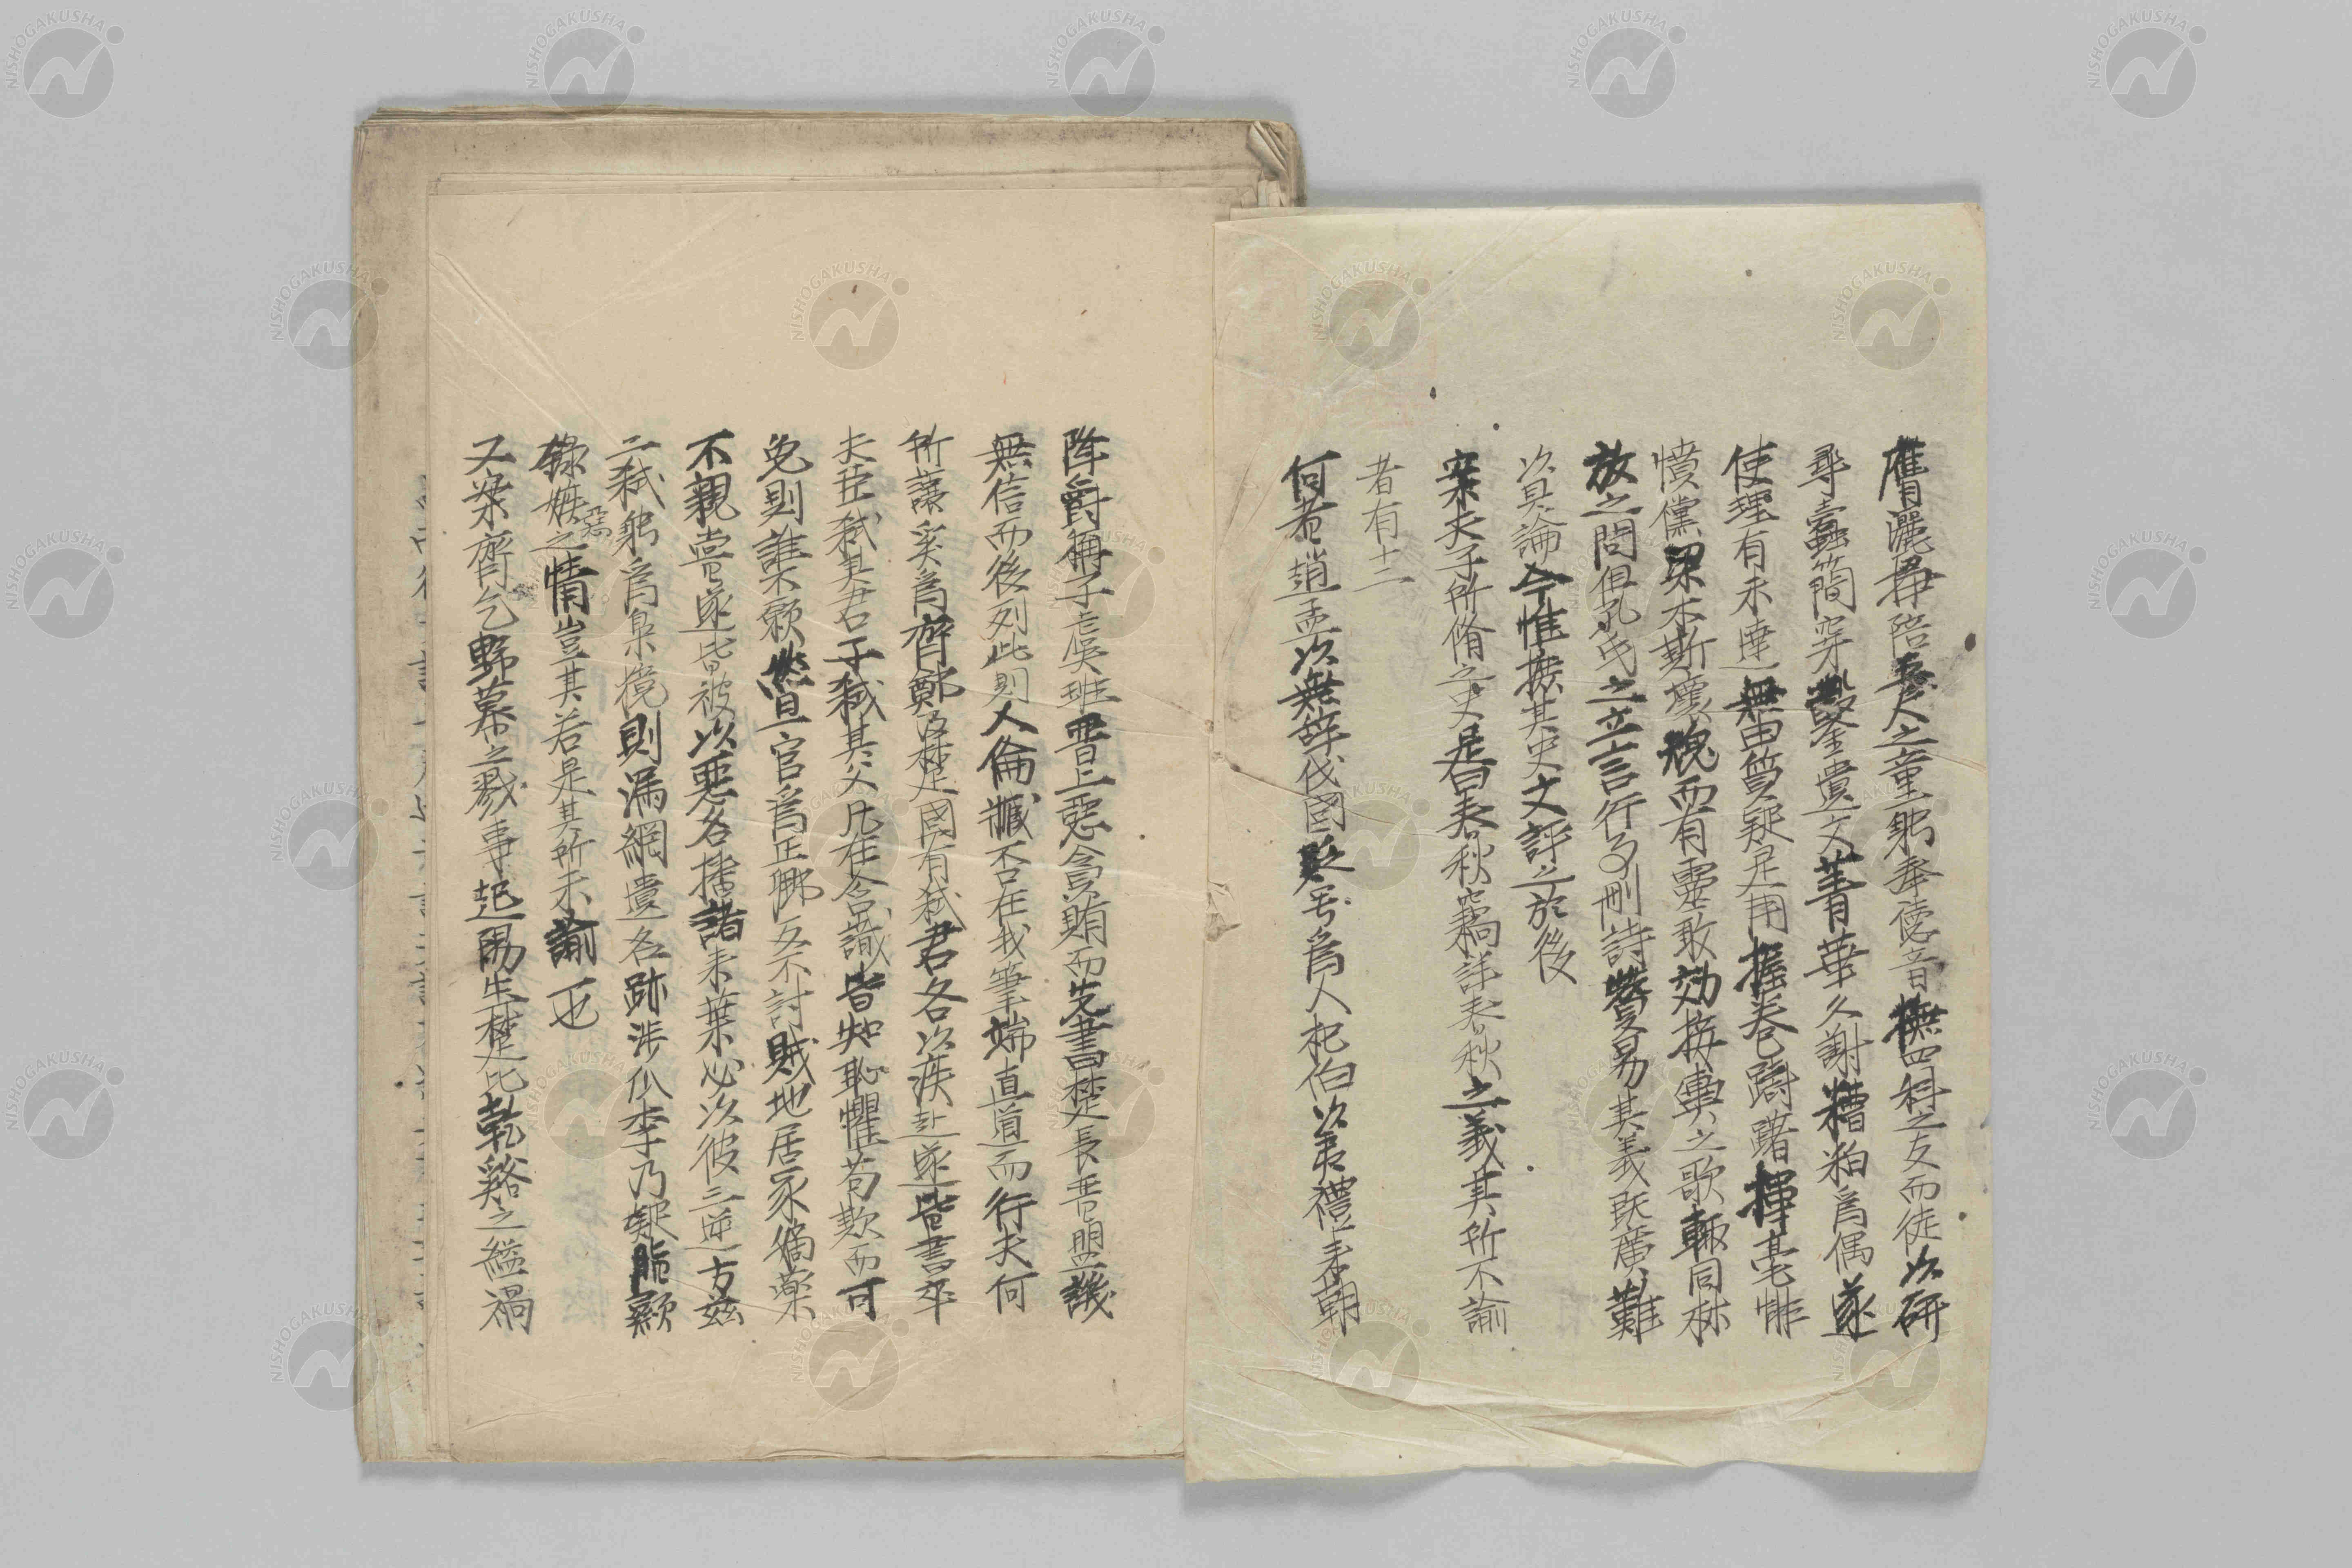 膺灑掃陪奉丈之童躬奉德音撫四科之友而徒以研
尋蠹簡穿鑿遺文菁華久謝糟粕爲偶遂
使理有未達無由質疑是用握卷躊躇揮毫悱
憤儻梁木斯壞魂而有靈敢効接輿之歌輒同林
放之問但孔氏之立言行事刪詩賛易其義既廣難
以具論今惟摭其史文評之於後
案夫子所脩之史是曰春秋竊詳春秋之義其所不諭
者有十二
何者趙孟以無辭伐國貶号爲人杞伯以夷禮來朝
降爵稱子虞班晋上惡貪賄而先書楚長晋盟譏
無信而後列此則人倫臧否在我筆端直道而行夫何
所讓奚爲齊鄭及楚國有弑君各以疾赴遂皆書卒
夫臣弑其君子弑其父凡在含識皆知恥懼苟欺而可
免則誰不願然且官爲正卿反不討賊地居冢嫡藥
不親嘗遂皆被以惡名播諸來葉必以彼三逆方茲
二弑躬爲梟獍則漏網遺名跡涉瓜李乃疑脂顯
錄嫉惡之情豈其若是其所未諭一也
又案齊乞野幕之戮事起陽生楚比乾谿之縊禍